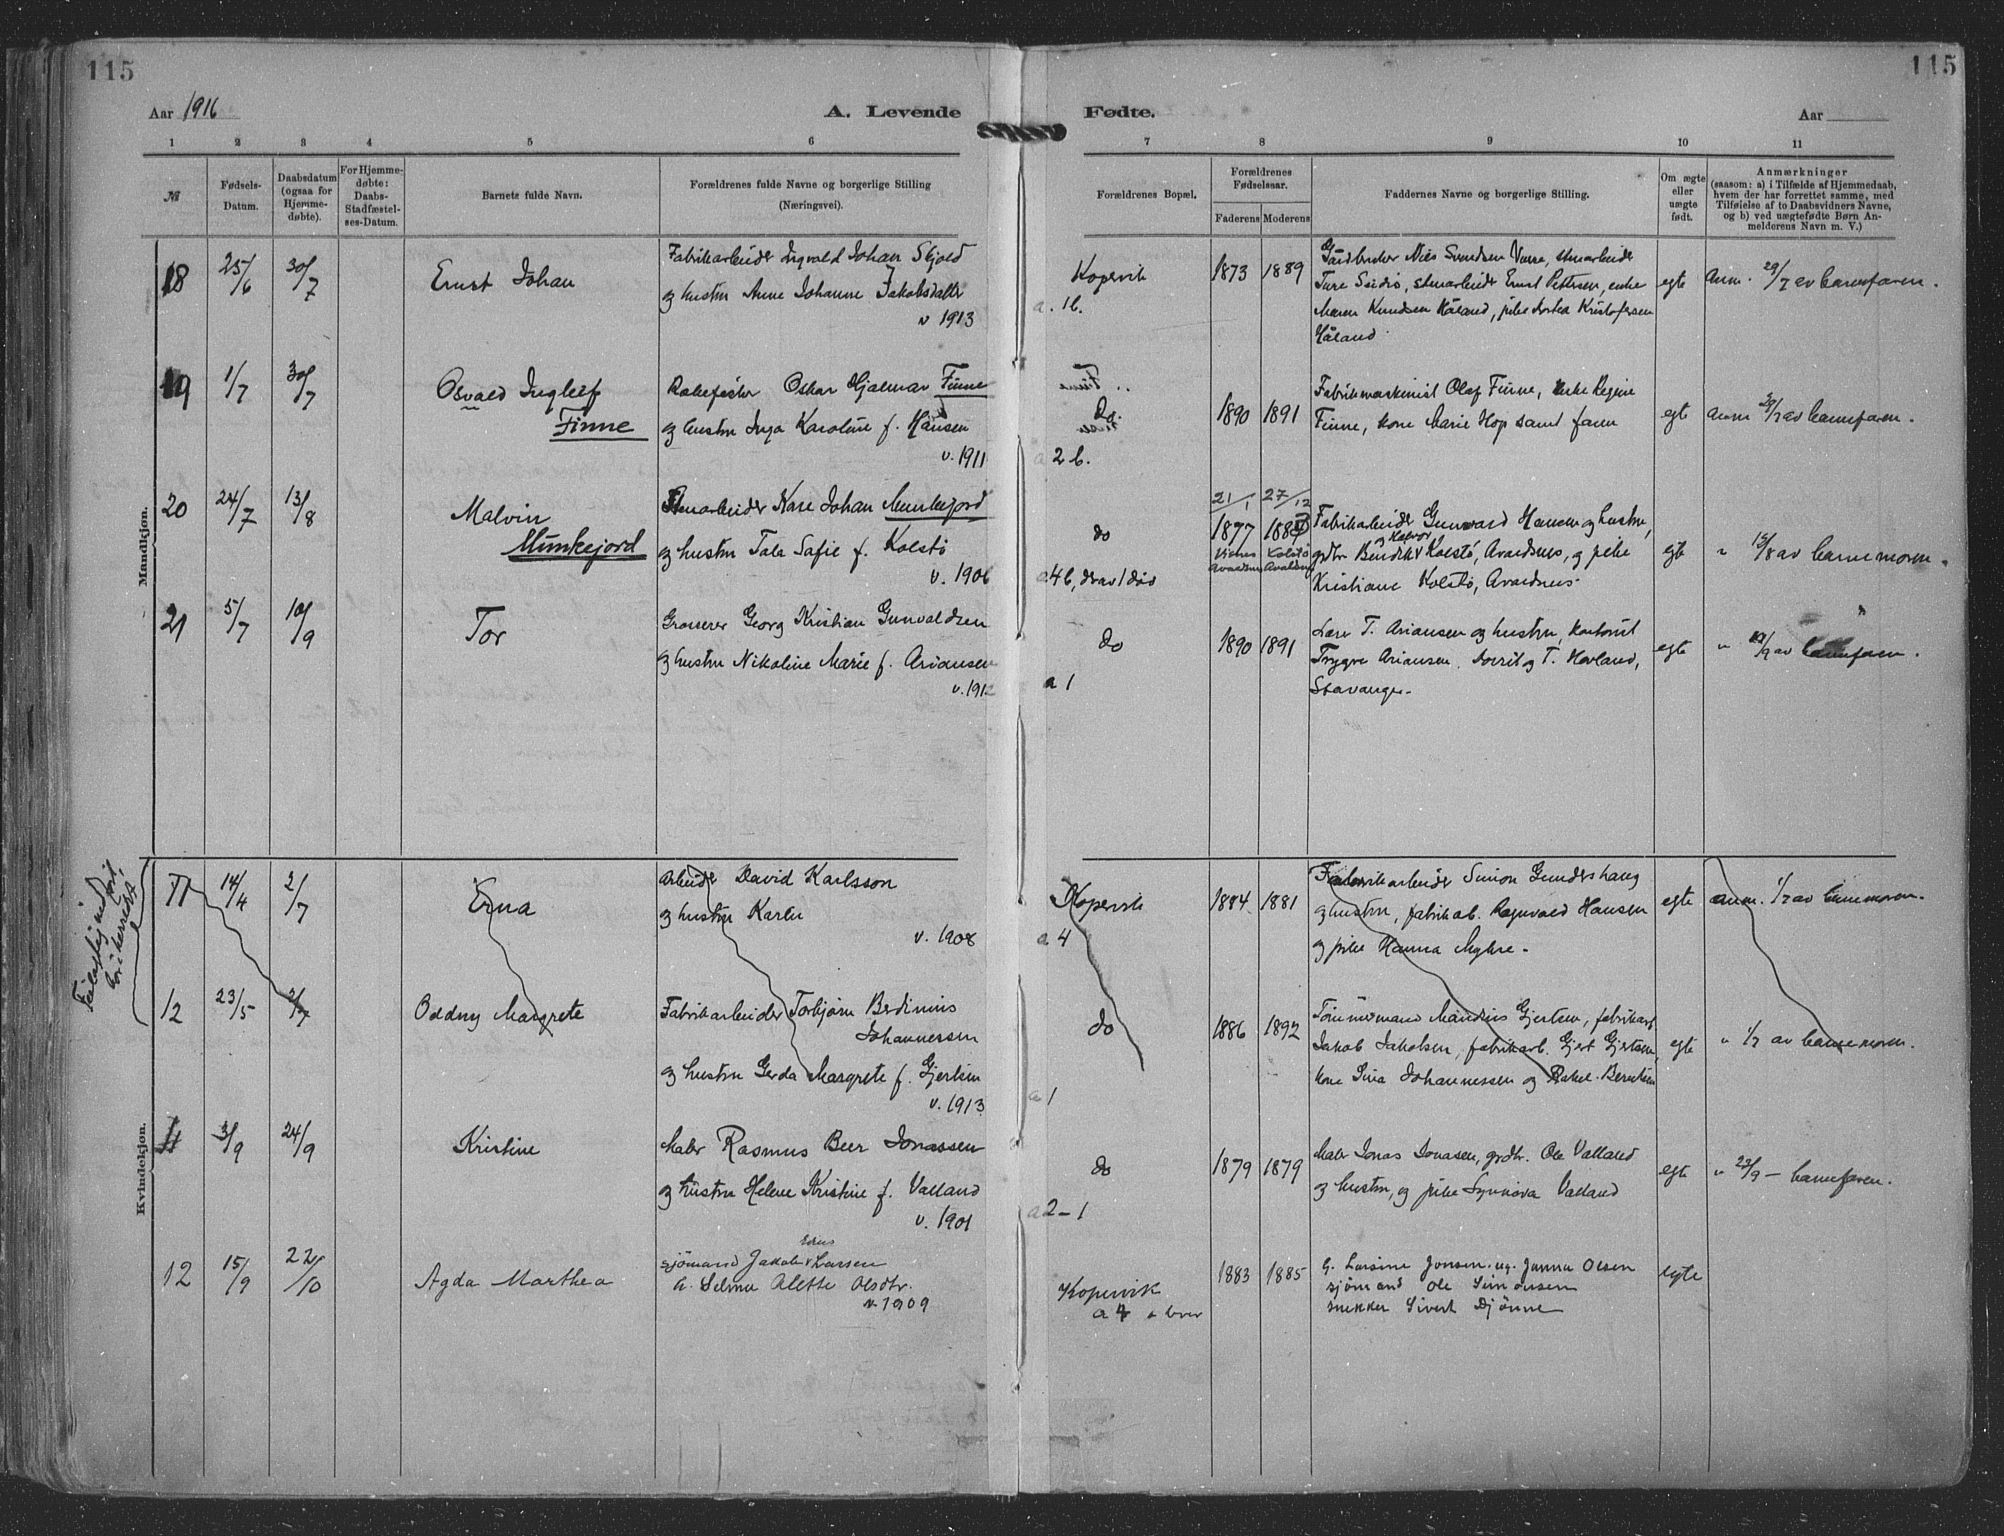 115
115
Aar 1916
A. Levende
Fødte.
Aar
1 2 3 4 5 6
7 8 9 10 11
№
Fødsels-
Datum.
Daabsdatum
(ogsaa for
Hjemme-
døbte).
For Hjemme-
døbte:
Daabs-
Stadfæstel-
ses-Datum.
Barnets fulde Navn.
Forældrenes fulde Navne og borgerlige Stilling
(Næringsvei).
Forældrenes Bopæl.
Forældrenes
Fødselsaar.
Faderens Moderens
Faddernes Navne og borgerlige Stilling.
Om ægte
eller
uægte
født.
Anmærkninger
(saasom: a) i Tilfælde af Hjemmedaab,
hvem der har forrettet samme, med
Tilføielse af to Daabsvidners Navne,
og b) ved uægtefødte Børn An-
melderens Navn m. V.)
Mandkjøn.
18 25/6 30/7 Ernst Johan
Fabrikarbeider Ingvald Johan Skjold
og hustru Anne Johanne Jakobsdatter
v 1913
Kopervik
a. 1b.
1873 1889
Gårdbruker Nils Svendsen Varre, stenarbeider
Ture, stenarbeider Ernst Pettersen, enke
Maren Knudsen Håland, pike Kristofersen
Håland.
egte anm. 29/7 av barnefaren.
19 1/7 30/7 Osvald Ingleif
Finne
Oskar Hjalmar Finne
og hustru Inga Karoline f. Hansen
v. 1911
do.
a 2 b.
1890 1891
Fabrikmaskinist Olaf Finne, enke Regine
Finne, kone Marie Hop samt faren
egte anm 29/7 av barnefaren.
20 24/7 13/8 Malvin
Munkejord
Stenarbeider Kare Johan Munkejord
og hustru Tala Safie f. Kolstø
v. 1906
do
a 4 b, derav 1 død
21/1 27/12
1877 1884
Avaldsnes Kolstø Avaldsnes
Fabrikarbeider Gunvard Hansen og hustru,
grdbr Bendik Kolstø, Avaldsnes, og pike
Kristiane Kolstø, Avaldsnes.
egte " 12/8 av barnemoren.
21 5/7 10/9 Tor
Grosserer Georg Kristian Gunvaldsen
og hustru Nikoline Marie f. Ariansen
v. 1912
do
a 1
1890 1891
Lars T. Ariansen og hustru, kontorist
Trygve Ariansen, Dorrit og T. Hovland,
Stavanger.
egte " 10/9 av barnefaren.
Kvindekjøn.
Feilagtig indført,
bor i herredet
11 14/4 2/7 Erna
Arbeider David Karlsson
og hustru Karla
v. 1908
Kopervik
a 4
1884 1881
Fabrikarbeider Simon Gundershaug
og hustru, fabrikarb. Ragnvald Hansen
og pike Hanna Myhre.
egte anm. 1/7 av barnemoren.
12 23/5 2/7 Oddny Margrete
Fabrikarbeider Torbjørn Berdinius
Johannessen
og hustru Gerda Margrete f. Gjertsen
v. 1913
do
a 1
1886 1892
Tømmermand Mandius Gjertsen, fabrikarb.
Jakob Jakobsen, fabrikarb. Gjert Gjertsen,
kone Sina Johannessen og Rakel Berntsen
egte " 1/7 av barnemoren.
11 3/9 24/9 Kristine
Maler Rasmus Beer Jonassen
og hustru Helene Kristine f. Valland
v. 1901
do
a 2 – 1
1879 1879
Maler Jonas Jonasen, grdbr. Ole Valland
og hustru, og pike Synnøva Valland
egte " 23/9 – barnefaren.
12 15/9 22/10 Agda Marthea
sjømand Jakob Larsen
o. Selma Alette Olsdtr.
v. 1909
Kopervik
a 4
1883 1885
G. Larsine Jonsen, ug. Janna Olsen
sjømand Ole Simonsen
snekker Sivert Djønne
egte